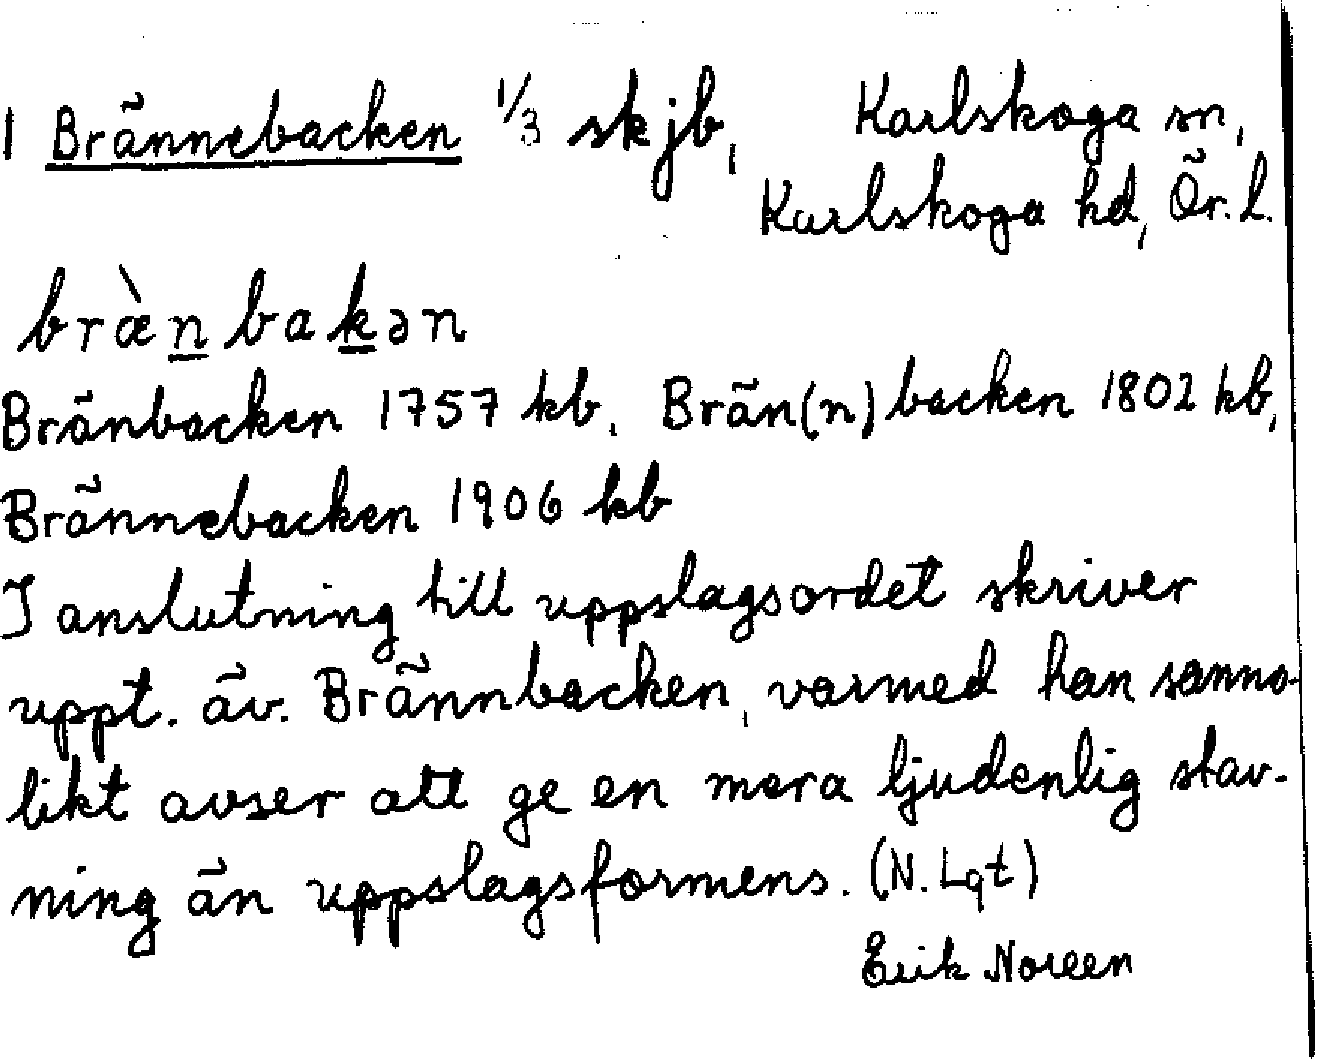 1 Brännebacken 1/3 skjb, Karlskoga sn,
Karlskoga hd, Ör. l.
bræ̀nbakən
Bränbacken 1757 kb, Brän(n)backen 1802 kb,
Brännebacken 1906 kb
I anslutning till uppslagsordet skriver
uppt. äv. Brännbacken, varmed han sanno-
likt avser att ge en mera ljudenlig stav-
ning än uppslagsformens. (N. Lqt)
Erik Noreen